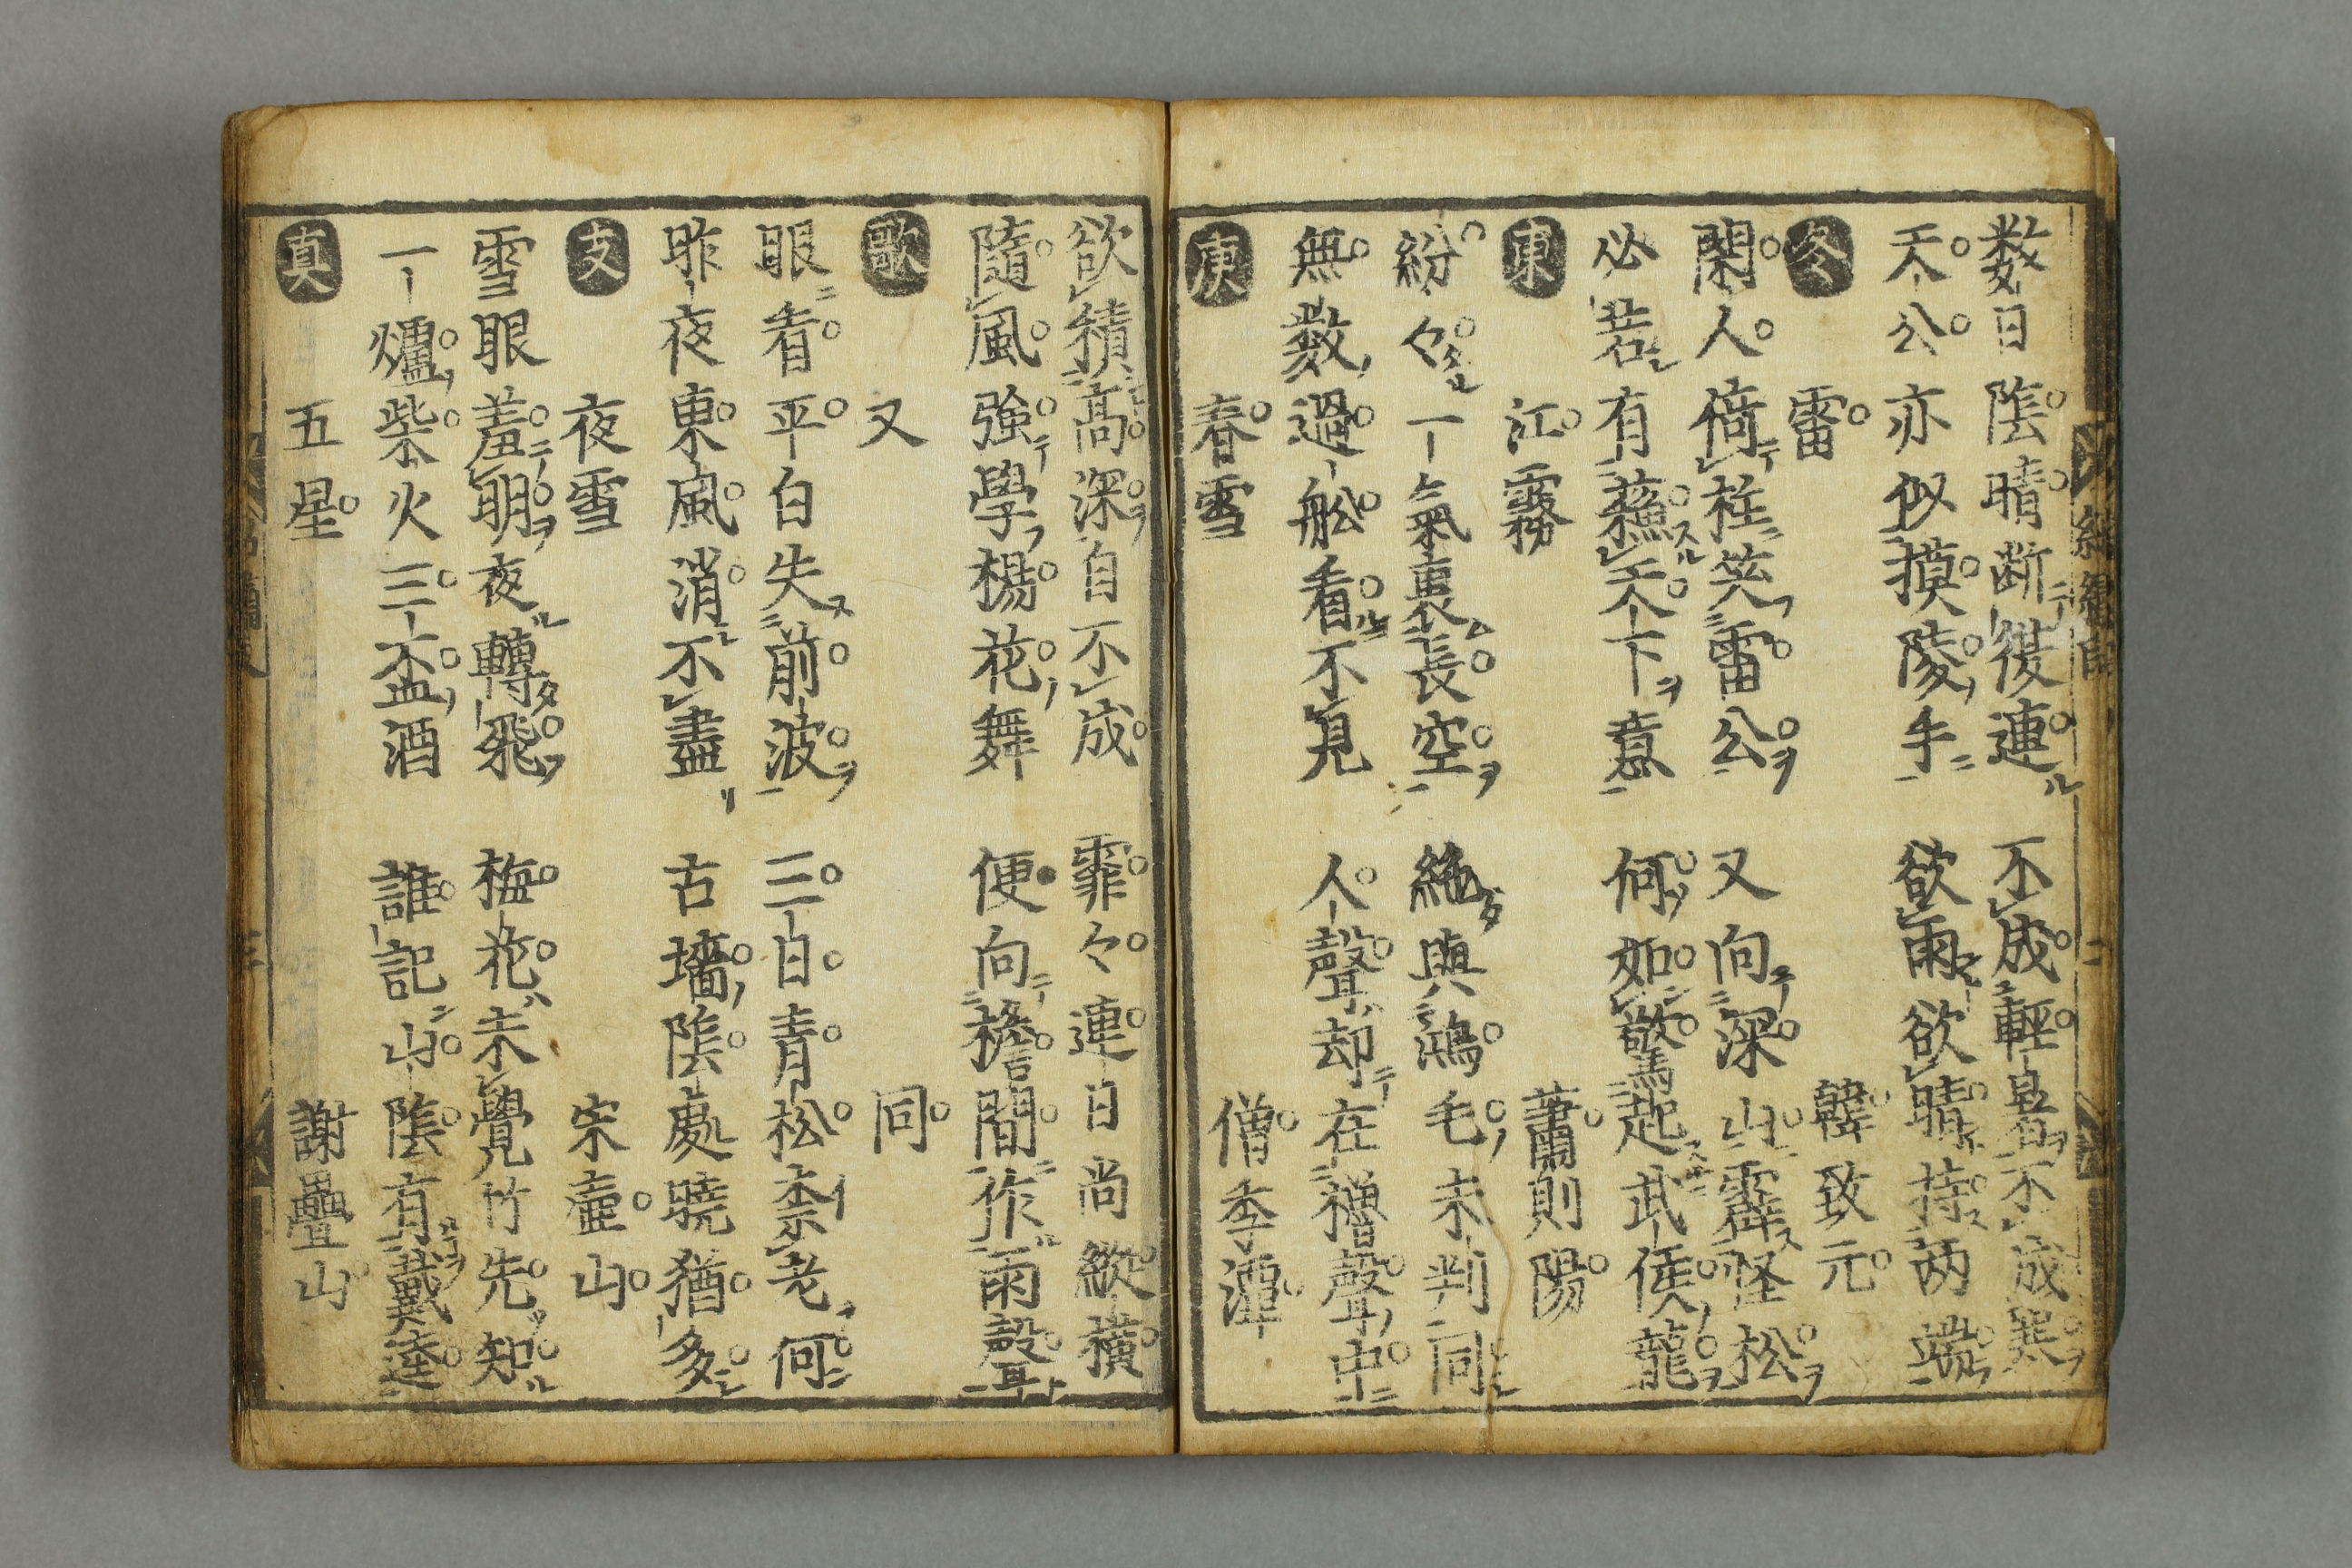 数日陰晴断復連　不成輕暑不成寒
天公亦似摸陵手　欲雨欲晴持两端
冬　雷　韓致元
閑人倚柱笑雷公　又向深山霹怪松
必若有蘓天下意　何如驚起武侯龍
東　江霧　蕭則陽
紛々一氣裹長空　絶與鴻毛未判同
無数過舩看不見　人聲却在櫓聲中
庚　春雪　僧季潭
欲積高深自不成　霏々連日尚縱横
隨風強學楊花舞　便向檐間作雨聲
歌　又　同
眼看平白失前波　三日青松柰老何
昨夜東風消不盡　古墻陰處曉猶多
支　夜雪　宋壷山
雪眼羞明夜轉飛　梅花未覺竹先知
一爐柴火三盃酒　誰記山陰有戴逵
真　五星　謝疊山